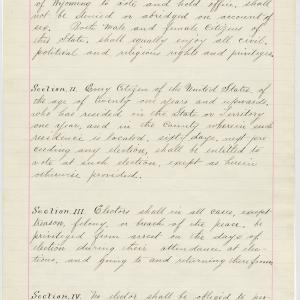 of Wyoming to vote and hold office, shall
not be denied or abridged on account of
sex. Both Male and female Citizens of
this State, shall equally enjoy all civil,
political and religious rights and privileges.
Section. II. Every Citizen of the United States of
the age of twenty one years and upwards,
who has resided in the State or Territory
one year, and in the County wherein such
residence is located, sixty days, next pre
ceeding any election, shall be entitled to
vote at such election, except as herein
otherwise provided.
Section. III. Electors shall in all cases, except
treason, felony, or breach of the peace, be
privileged from arrest on the days of
election during their attendance at elec-
tions, and going to and returning therefrom.
Section. IV. No elector shall be obliged to per-